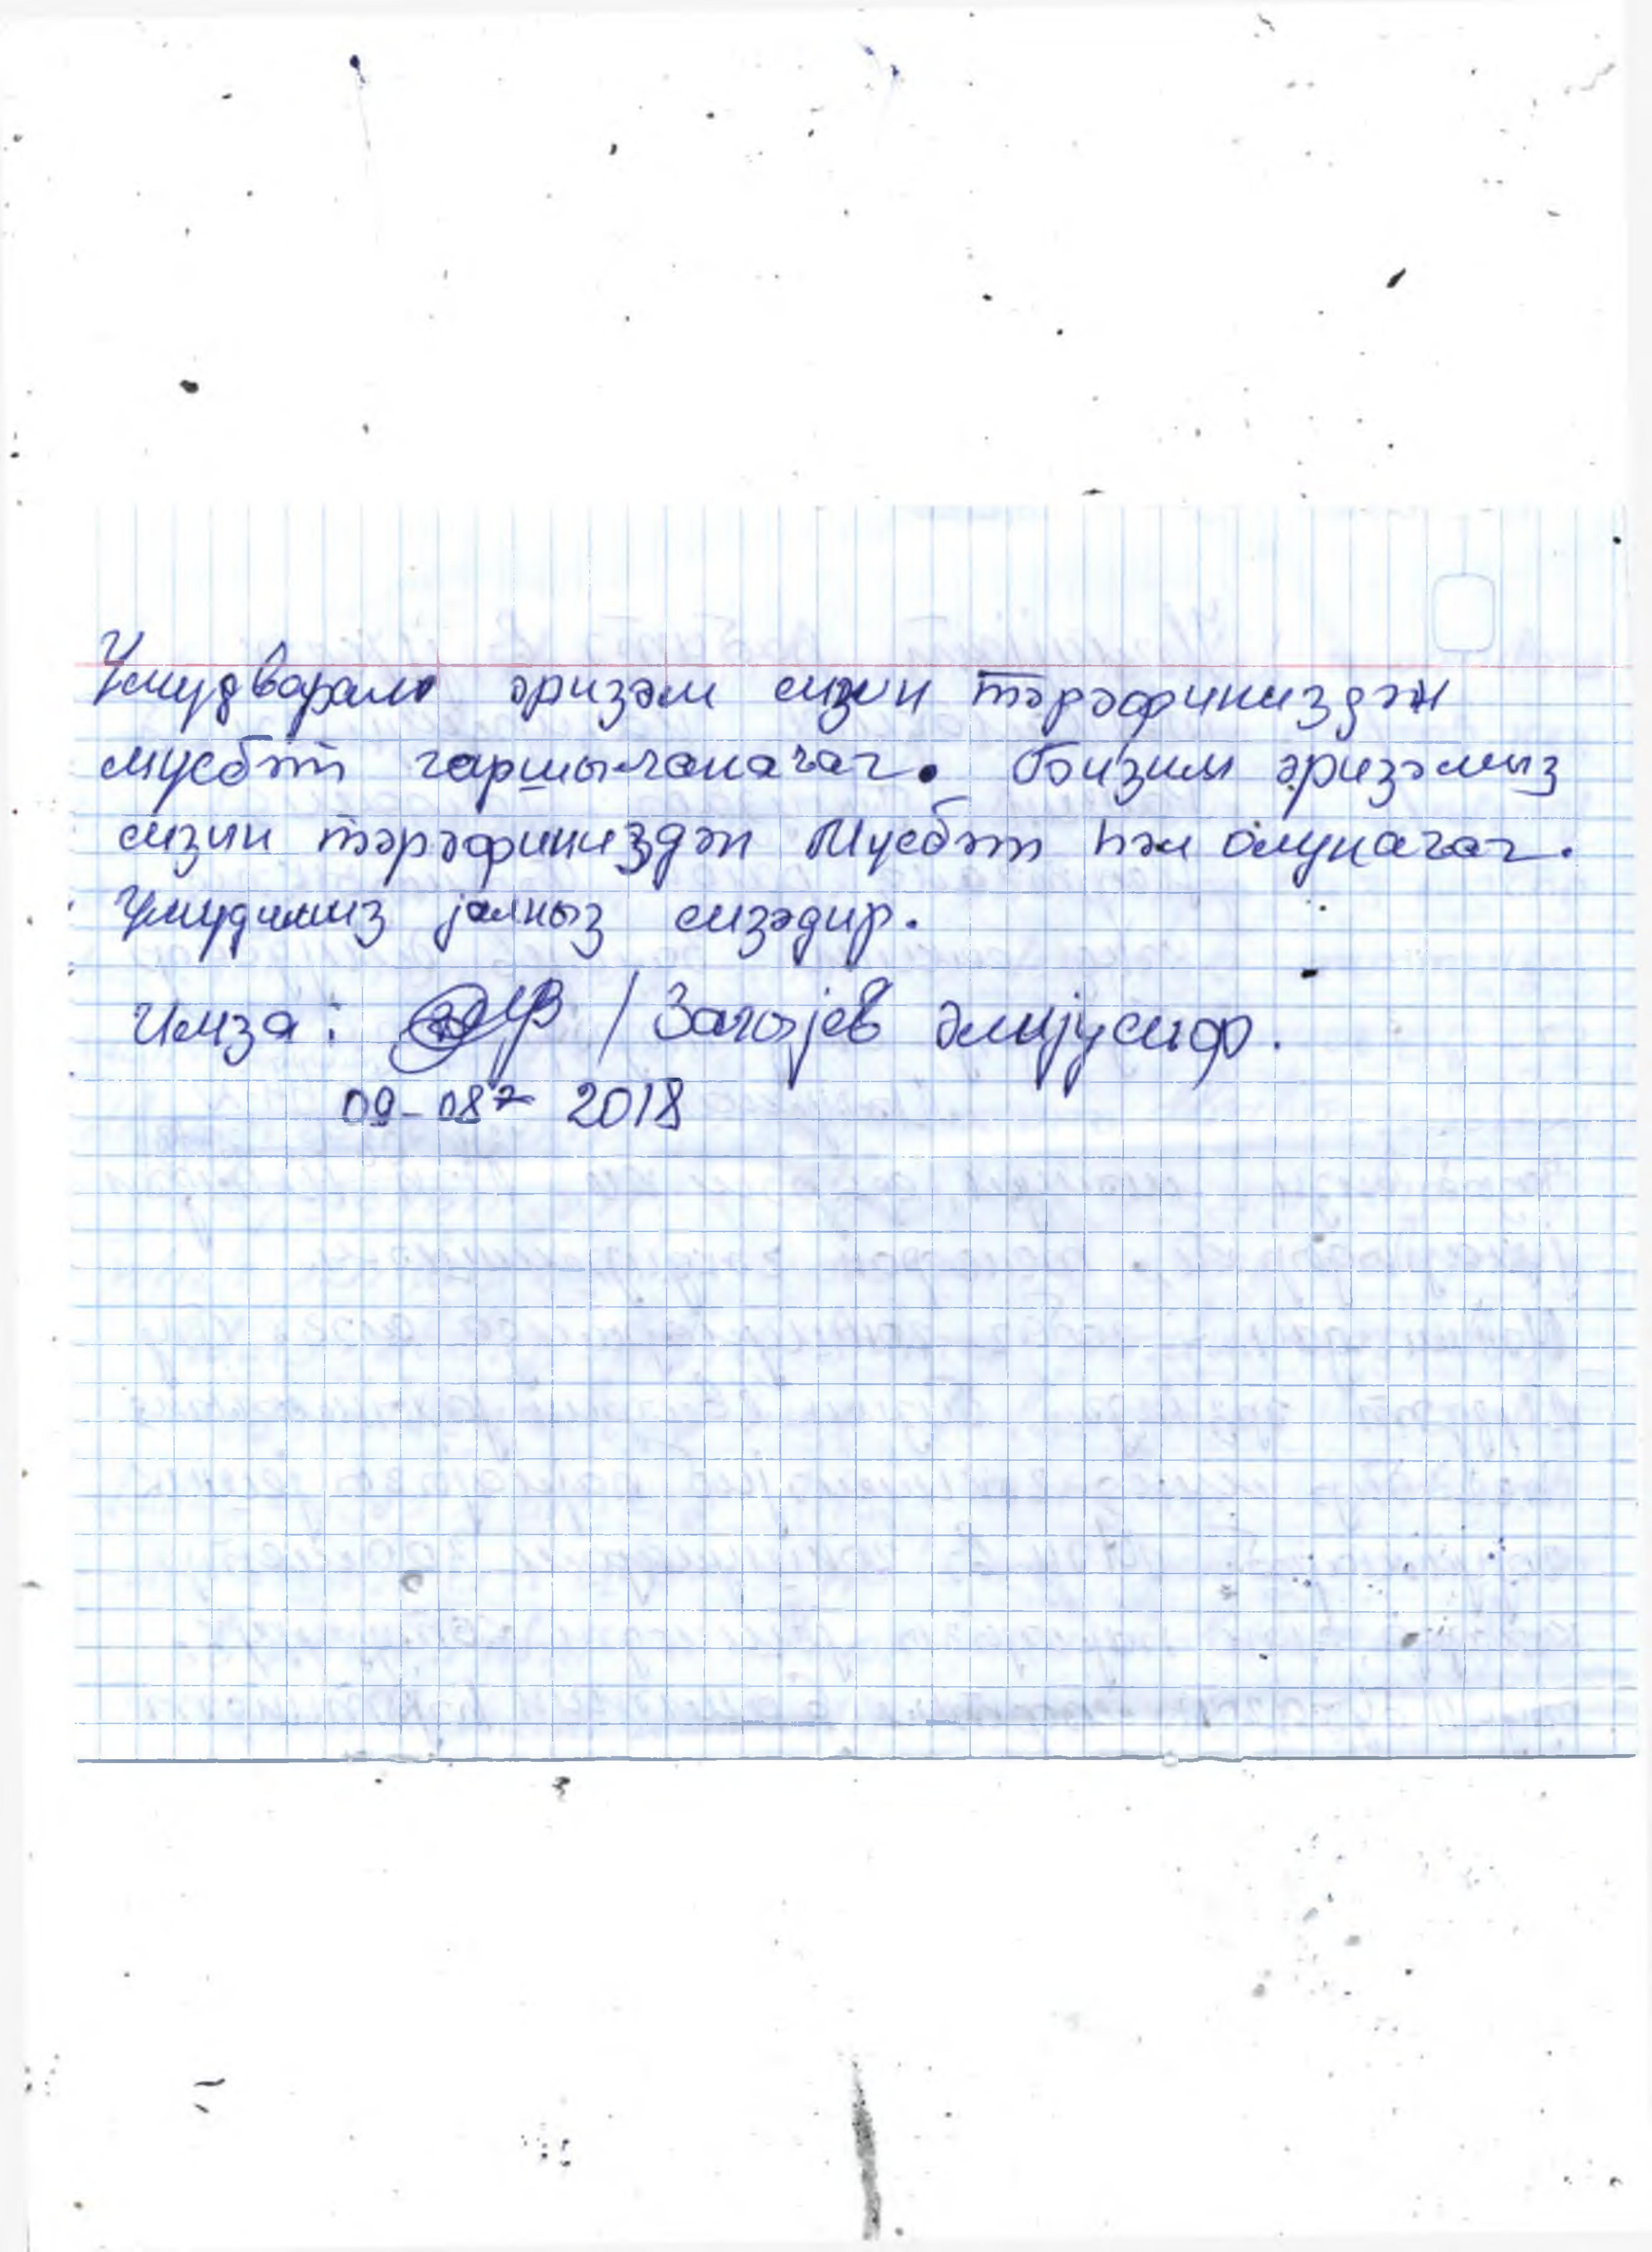 Умудварам әризәм сизин тәрәфиниздән
мусбәт гаршыланачаг. Бизим әризәмиз
сизин тәрәфиниздән Мусбәт һәл олуначаг.
Умудимиз јалныз сизәдир.
Имза: / Әлијусиф.
09-08- 2018